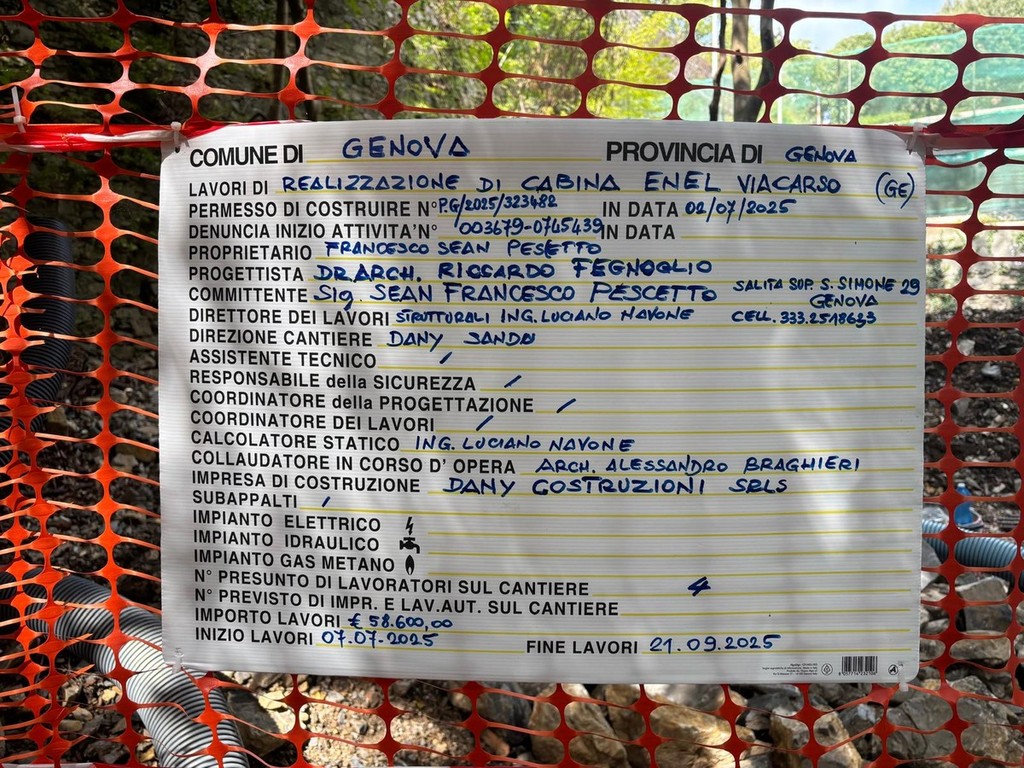 COMUNE DI GENOVA PROVINCIA DI GENOVA
LAVORI DI REALIZZAZIONE DI CABINA ENEL VIACARSO (GE)
PERMESSO DI COSTRUIRE N° P.G/2025/323482 IN DATA 02/07/2025
DENUNCIA INIZIO ATTIVITA' N° 003679-0745439 IN DATA
PROPRIETARIO FRANCESCO SEAN PESETTO
PROGETTISTA DR.ARCH. RICCARDO FEGNOGLIO
COMMITTENTE Sig. SEAN FRANCESCO PESCETTO SALITA SUP. S. SIMONE 29
GENOVA
DIRETTORE DEI LAVORI STRUTTURALI ING. LUCIANO NAVONE CELL. 333.2518633
DIREZIONE CANTIERE DANY SANDU
ASSISTENTE TECNICO /
RESPONSABILE della SICUREZZA /
COORDINATORE della PROGETTAZIONE /
COORDINATORE DEI LAVORI /
CALCOLATORE STATICO ING. LUCIANO NAVONE
COLLAUDATORE IN CORSO D' OPERA ARCH. ALESSANDRO BRAGHIERI
IMPRESA DI COSTRUZIONE DANY COSTRUZIONI SRLS
SUBAPPALTI /
IMPIANTO ELETTRICO
IMPIANTO IDRAULICO
IMPIANTO GAS METANO
N° PRESUNTO DI LAVORATORI SUL CANTIERE 4
N° PREVISTO DI IMPR. E LAV.AUT. SUL CANTIERE
IMPORTO LAVORI € 58.600,00
INIZIO LAVORI 07.07-2025 FINE LAVORI 21.09.2025